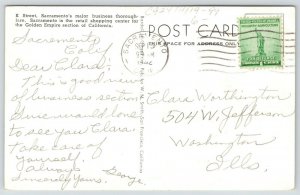 K Street, Sacramento's major business thorough-
fare. Sacramento is the retail shopping center for
the Golden Empire section of California.
POST CARD
THIS SPACE FOR ADDRESS ONLY
Sacramento
Calif
Dear Clara:
This is good view
of business section
Since would love
to see you Clara.
Take care of
yourself.
Always
Sincerely Yours.
George.
Clara Worthington
504 W. Jefferson
Washington
Ills.